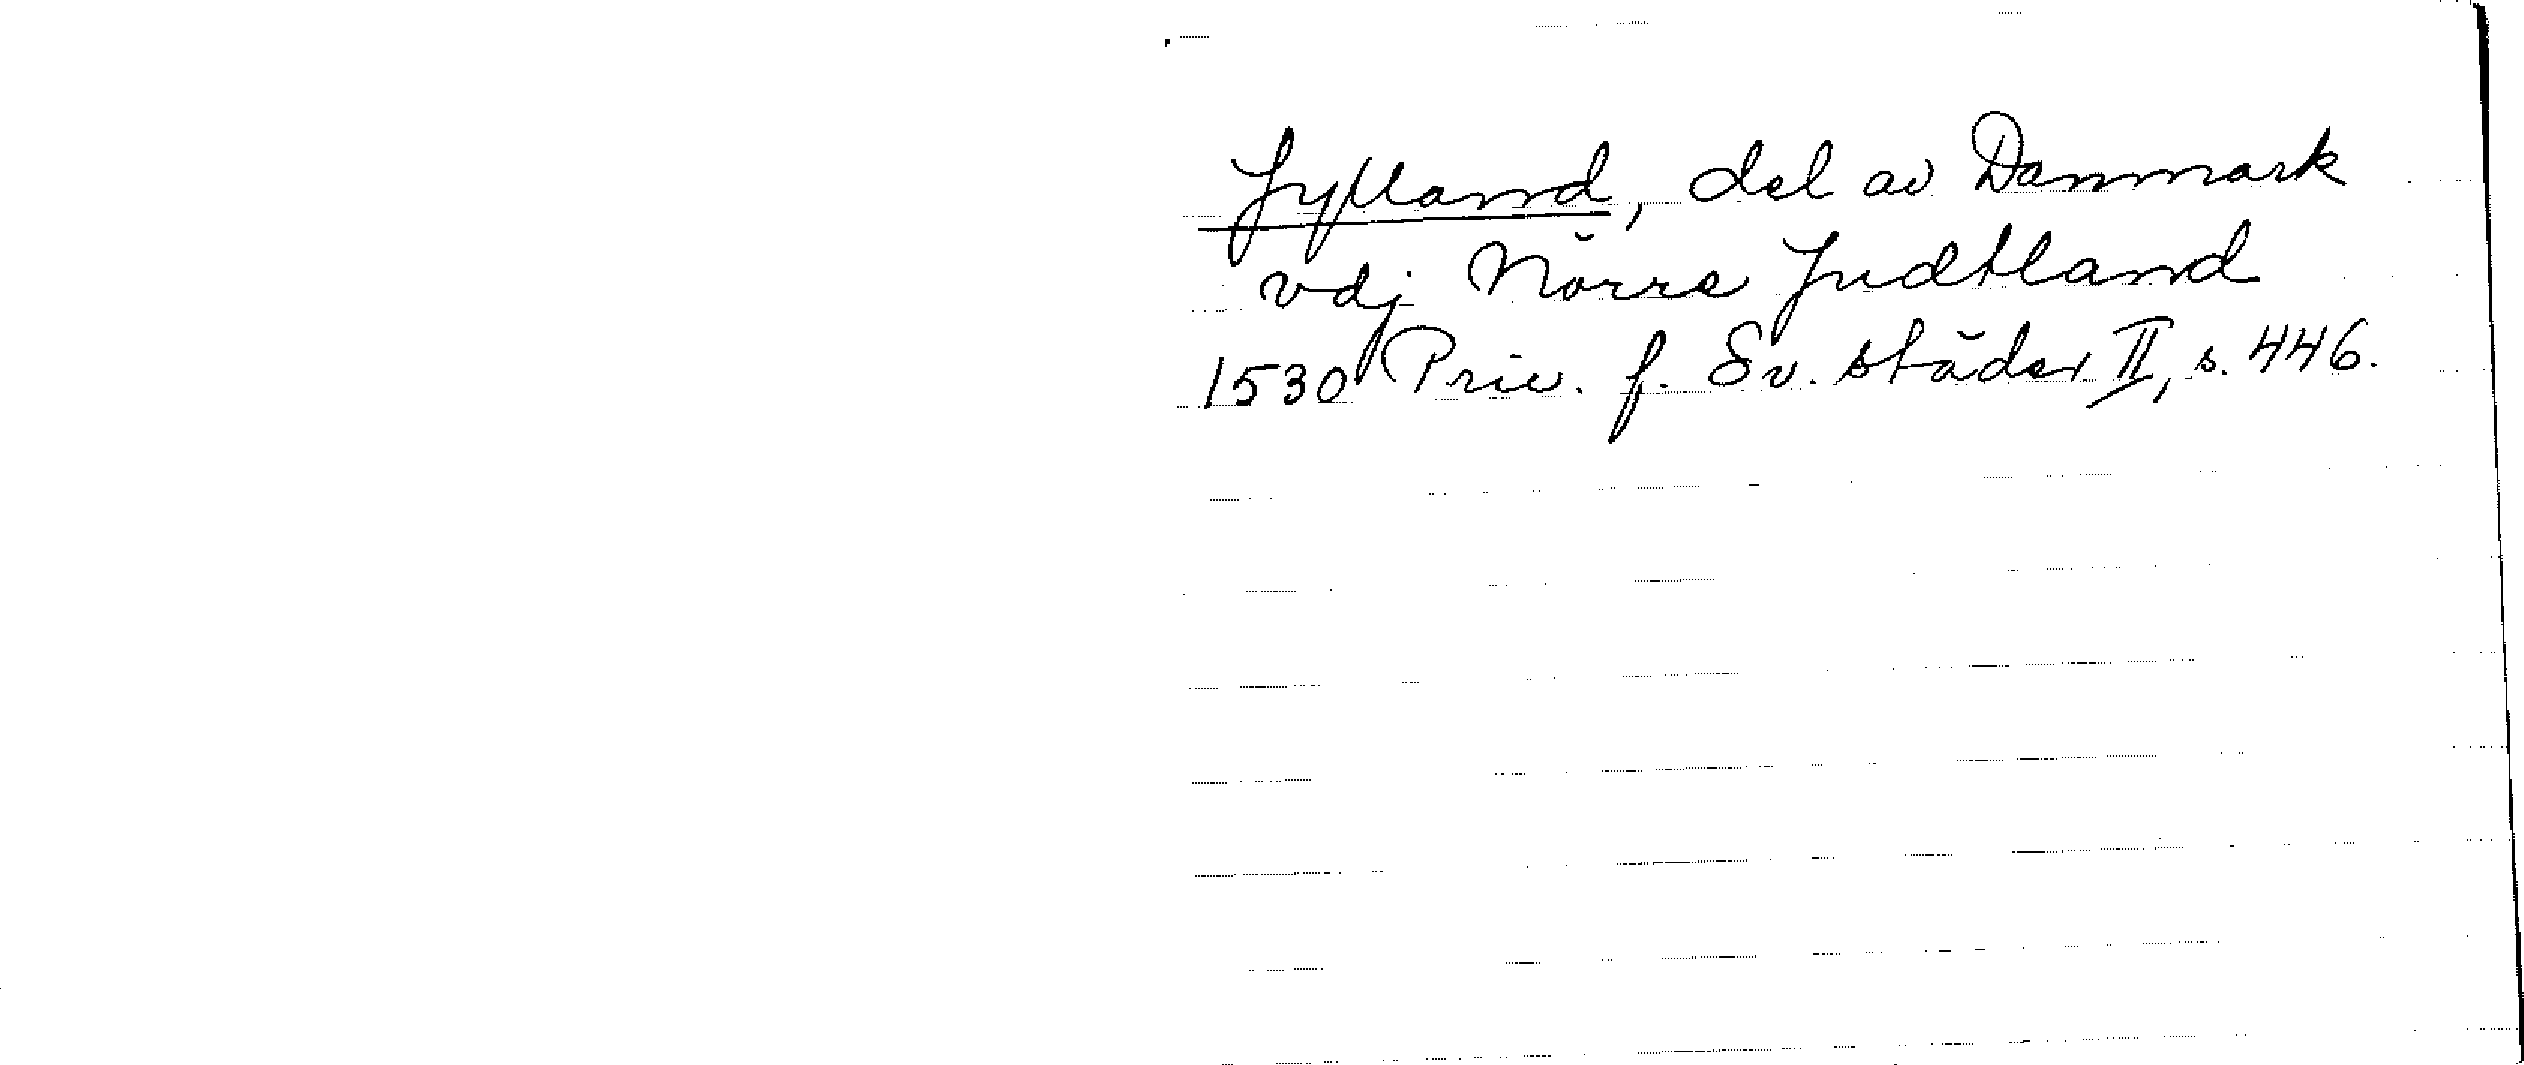 Jylland, del av Danmark
vdj Nörre Judtland
1530 Priv. f. Sv. städer II, s. 446.